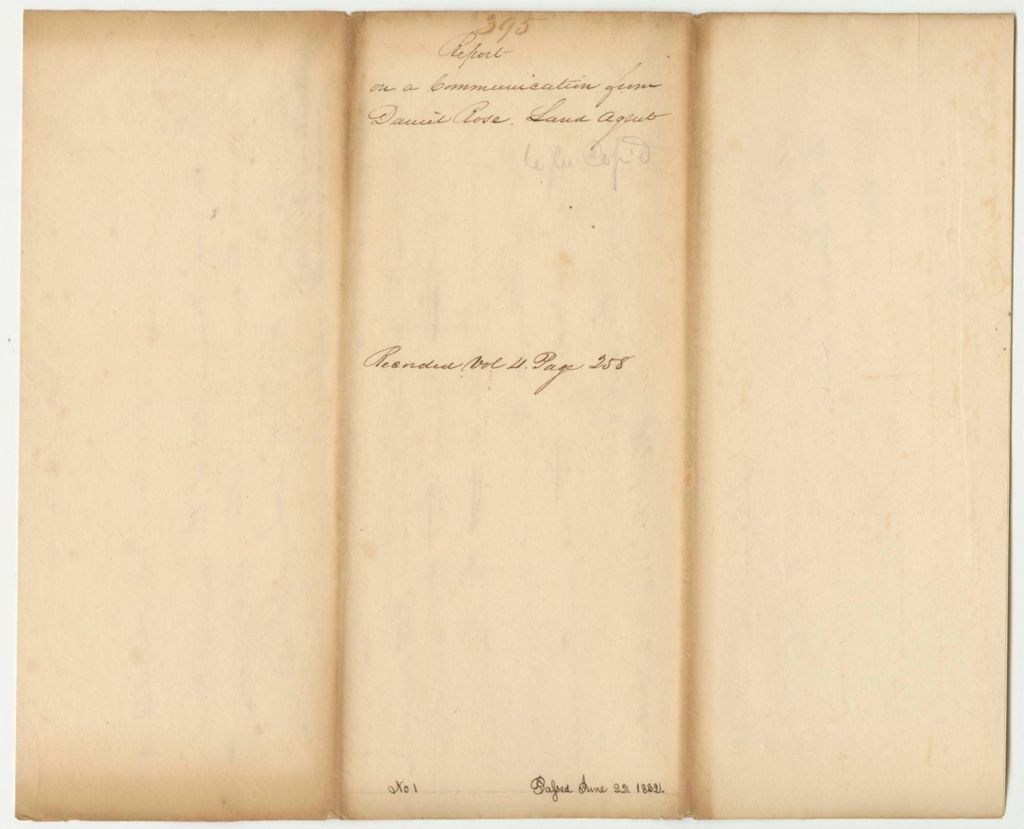 395
Report
on a Communication from
Daniel Rose. Land Agent
to be Copi'd
Recorded Vol 4. Page 258
No 1
Passed June 22 1832.